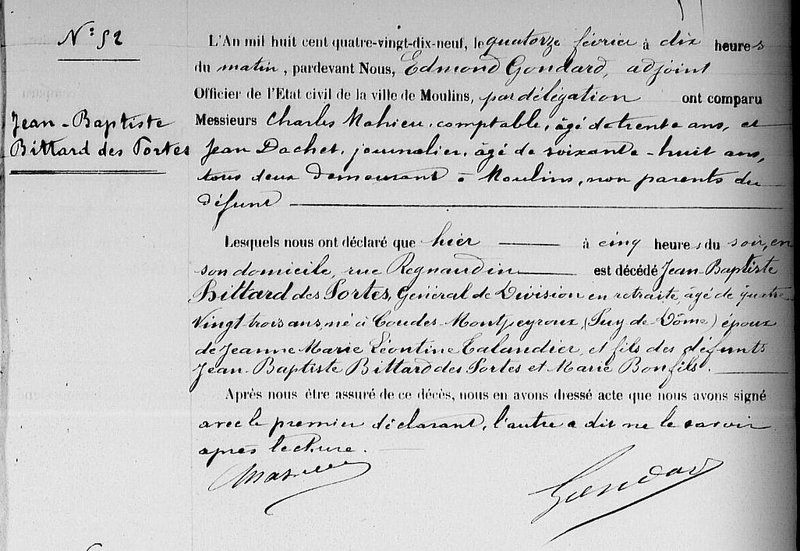 N° 52
Jean-Baptiste
Bittard des Portes
L'An mil huit cent quatre-vingt-dix-neuf, le quatorze février à dix heures
du matin, pardevant Nous, Edmond Gondard, adjoint
Officier de l'Etat civil de la ville de Moulins, par délégation ont comparu
Messieurs Charles Mahieu, comptable, âgé de trente ans, et
Jean Dachet, journalier, âgé de soixante-huit ans,
tous deux demeurant à Moulins, non parents du
défunt
Lesquels nous ont déclaré que hier à cinq heures du soir, en
son domicile, rue Regnaudin est décédé Jean-Baptiste
Bittard des Portes, Général de Division en retraite, âgé de quatre
vingt trois ans, né à Coudes Montpeyroux (Puy-de-Dôme) époux
de Jeanne Marie Léontine Talandier, et fils des défunts
Jean-Baptiste Bittard des Portes et Marie Bonfils.
Après nous être assuré de ce décès, nous en avons dressé acte que nous avons signé
avec le premier déclarant, l'autre a dit ne le savoir
après lecture.
Mahieu
Gondard